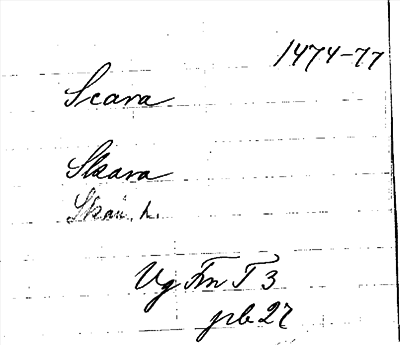 1474-77
Scara
Skara
Skan. h.
Vg Fn T 3
pb 27